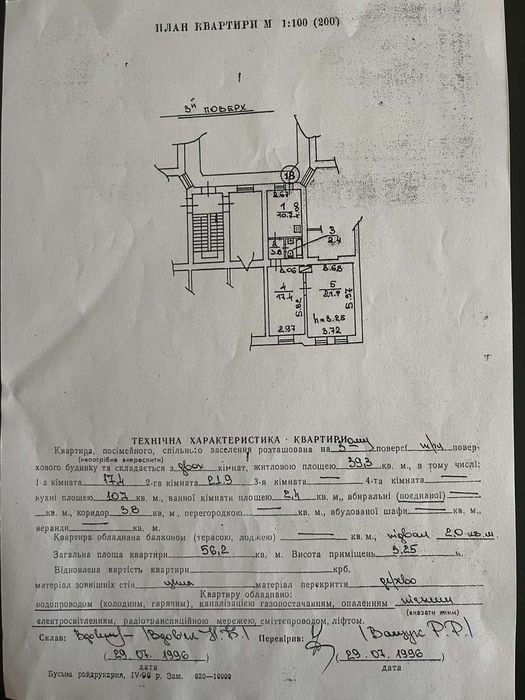 ПЛАН КВАРТИРИ М 1:100 (200)
3й ПОВЕРХ
18
2.67
1
10.7
3
2.4
2
3.8
3.06
3.68
4
17.4
5.82
5
21.9
5.97
h=3.25
2.97
3.72
ТЕХНІЧНА ХАРАКТЕРИСТИКА КВАРТИРИ
Квартира, посімейного, спільного заселення розташована на 3ому поверсі повер-
(непотрібне викреслити)
хового будинку та складається з двох кімнат, житловою площею 39.3 кв. м., в тому числі:
1 а кімната 17.4 2-га кімната 21.9 3-я кімната — 4-та кімната —
кухні площею 10.7 кв. м., ванної кімнати площею 2.4 кв. м., вбиральні (поєднаної) —
кв. м., коридор 3.8 кв. м., перегородкою — кв. м., вбудованої шафи — кв. м.,
веранди — кв. м.
Квартира обладнана балконом (терасою, лоджею) — кв. м., підвал 2,0 кв.м.
Загальна площа квартири 56,2 кв. м. Висота приміщень 3.25 м.
Відновлена вартість квартири крб.
матеріал зовнішніх стін цегла матеріал перекриття дерево
Квартиру обладнано:
водопроводом (холодним, гарячим), каналізацією газопостачанням, опаленням пічним
(вказати яким)
електросвітленням, радіотрансляційною мережею, сміттєпроводом, ліфтом.
Склав: Перевірив:
(29.07.1996) (29.07.1996)
дата дата
Буська райдрукарня, IV-96 р. Зам. 620—10000